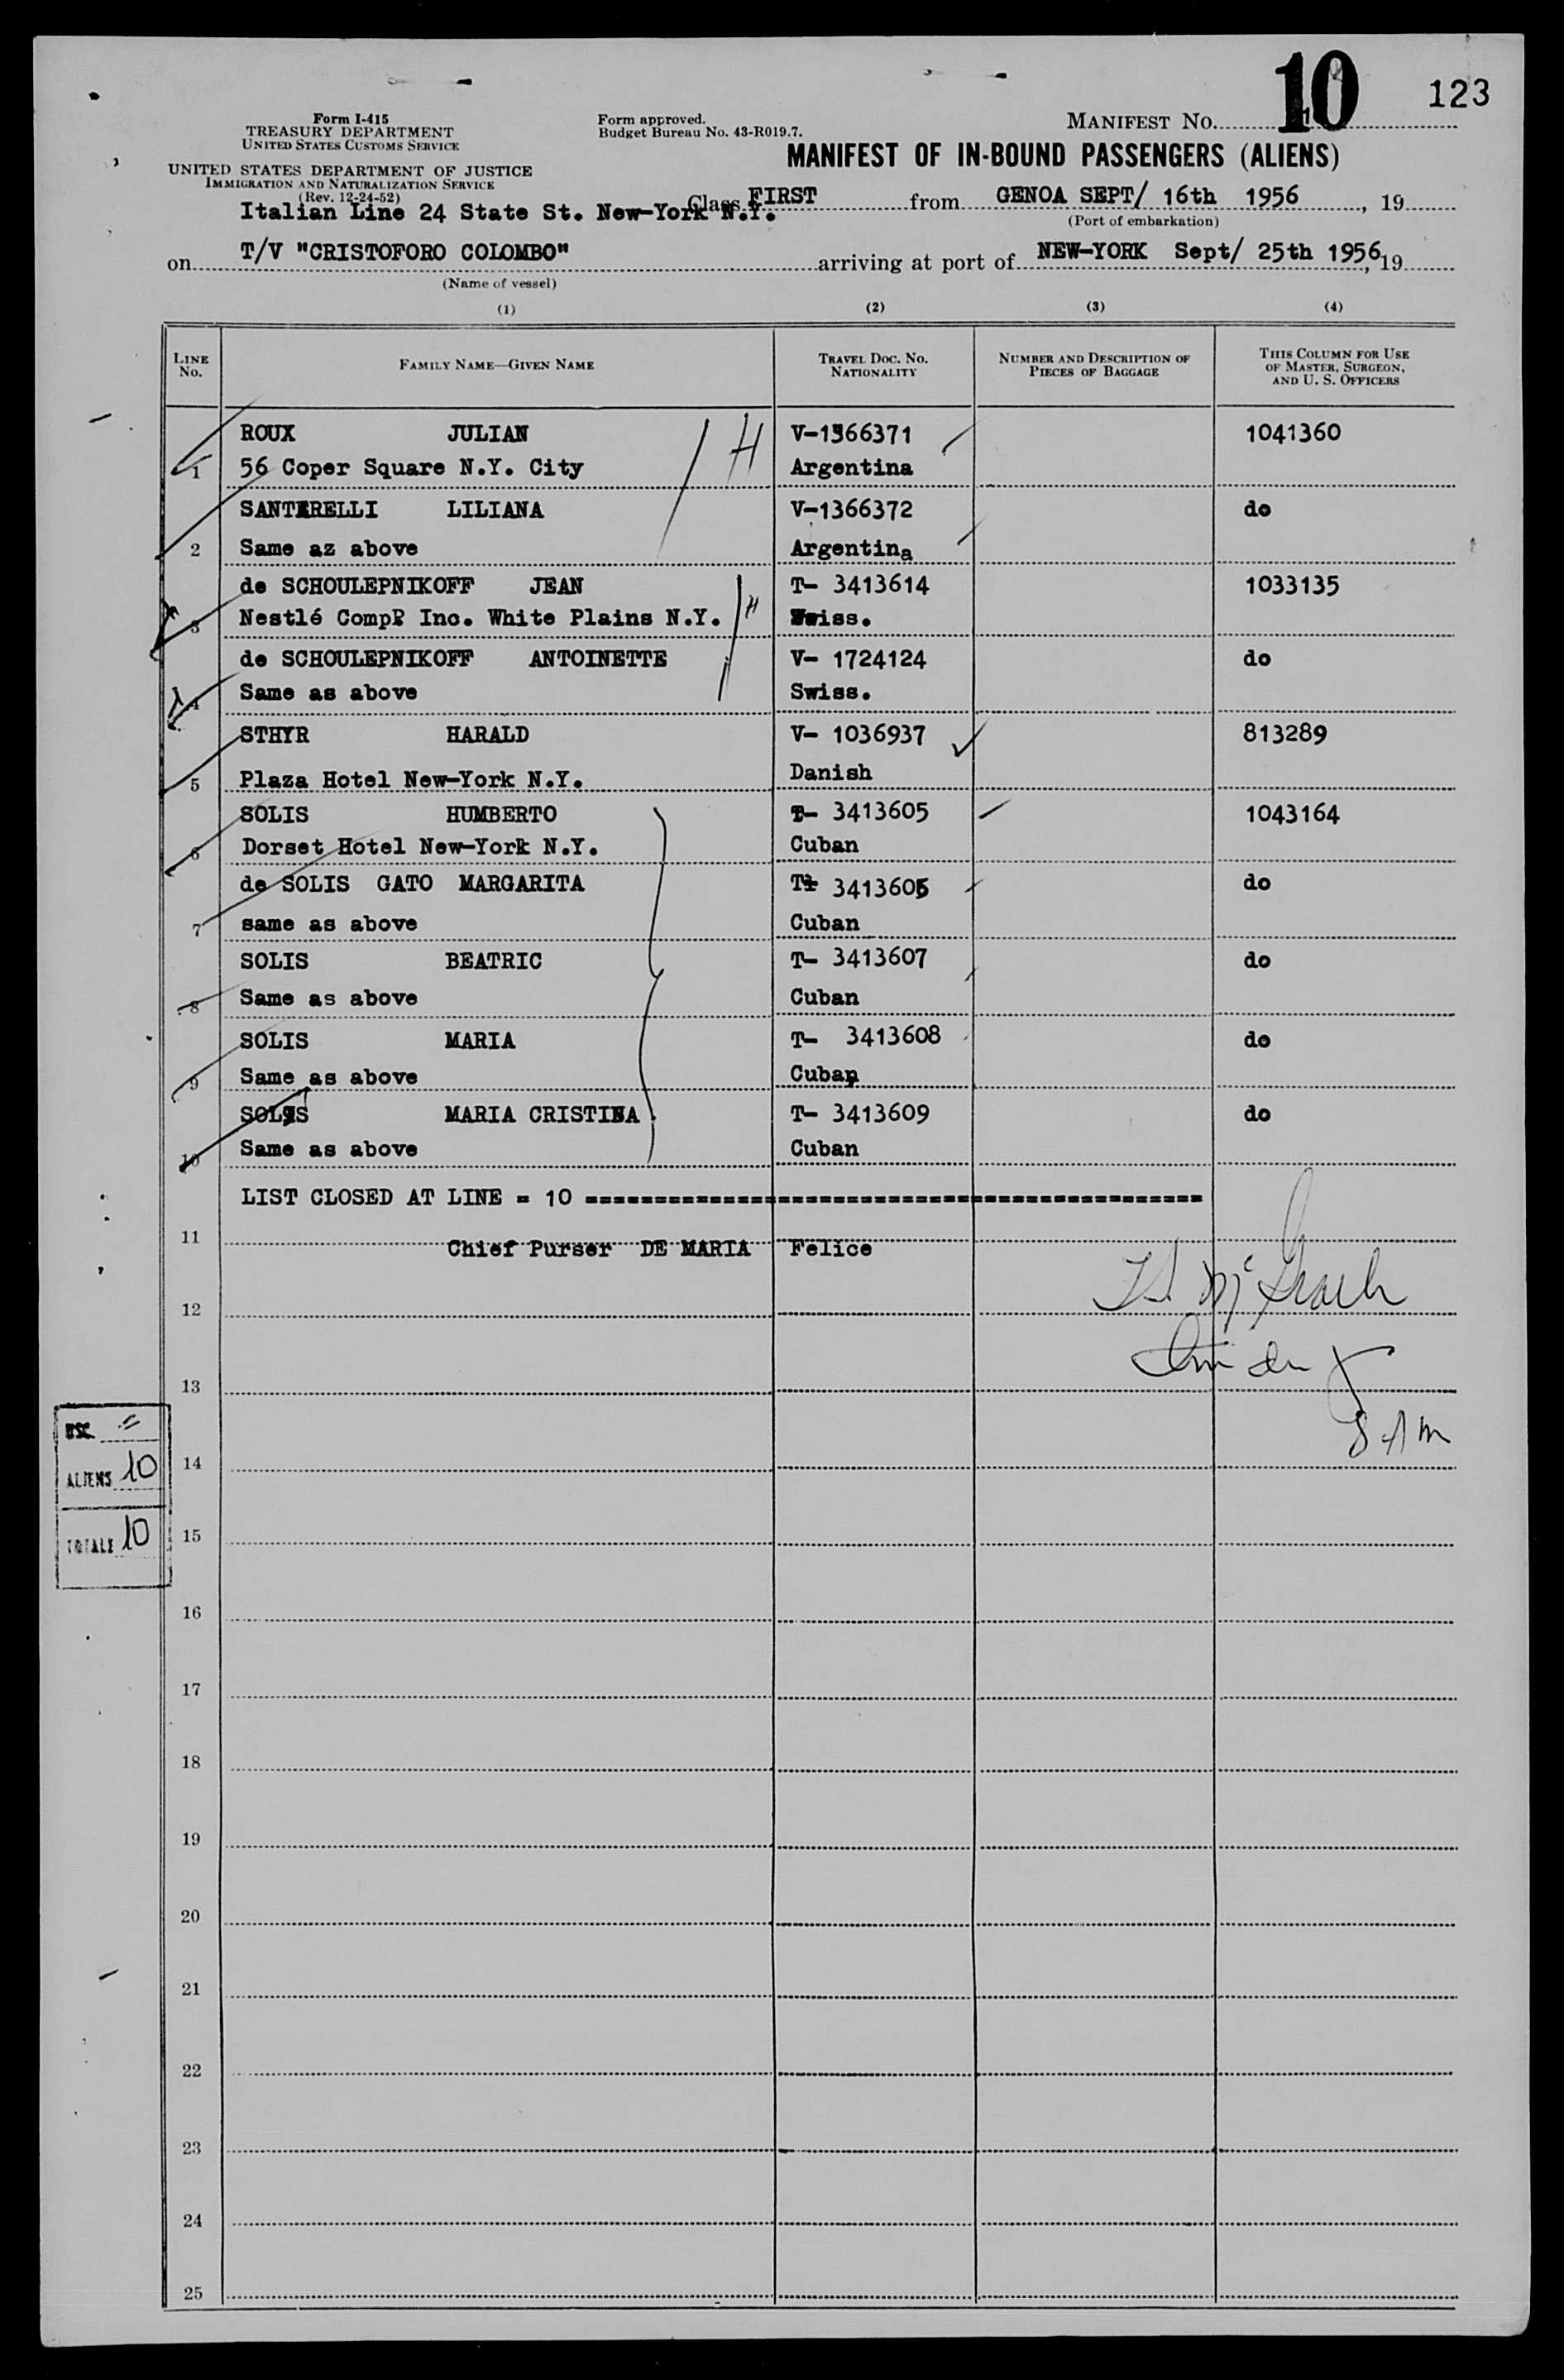 10 123
Form I-415
TREASURY DEPARTMENT
UNITED STATES CUSTOMS SERVICE
Form approved.
Budget Bureau No. 43-R019.7.
MANIFEST No.
MANIFEST OF IN-BOUND PASSENGERS (ALIENS)
UNITED STATES DEPARTMENT OF JUSTICE
IMMIGRATION AND NATURALIZATION SERVICE
(Rev. 12-24-52)
Italian Line 24 State St. New-York N.Y.
Class FIRST from GENOA SEPT/ 16th 1956, 19
(Port of embarkation)
on T/V "CRISTOFORO COLOMBO" arriving at port of NEW-YORK Sept/ 25th 1956, 19
(Name of vessel)
(1) (2) (3) (4)
LINE No. FAMILY NAME—GIVEN NAME TRAVEL DOC. No. NATIONALITY NUMBER AND DESCRIPTION OF PIECES OF BAGGAGE THIS COLUMN FOR USE OF MASTER, SURGEON, AND U. S. OFFICERS
ROUX JULIAN H V-1366371 1041360
1 56 Coper Square N.Y. City Argentina
SANTERELLI LILIANA V-1366372 do
2 Same az above Argentina
de SCHOULEPNIKOFF JEAN T- 3413614 1033135
3 Nestlé Comp. Inc. White Plains N.Y. H Swiss.
de SCHOULEPNIKOFF ANTOINETTE V- 1724124 do
4 Same as above Swiss.
STHYR HARALD V- 1036937 813289
5 Plaza Hotel New-York N.Y. Danish
SOLIS HUMBERTO T- 3413605 1043164
6 Dorset Hotel New-York N.Y. Cuban
de SOLIS GATO MARGARITA T- 3413606 do
7 same as above Cuban
SOLIS BEATRIC T- 3413607 do
8 Same as above Cuban
SOLIS MARIA T- 3413608 do
9 Same as above Cuban
SOLIS MARIA CRISTINA T- 3413609 do
10 Same as above Cuban
LIST CLOSED AT LINE = 10 ============================================
11 Chief Purser DE MARIA Felice
12
13
8 AM
USC =
ALIENS 10
14
TOTALE 10
15
16
17
18
19
20
21
22
23
24
25